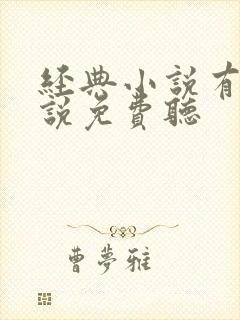 經典小說有
說免費聽
曹夢雅